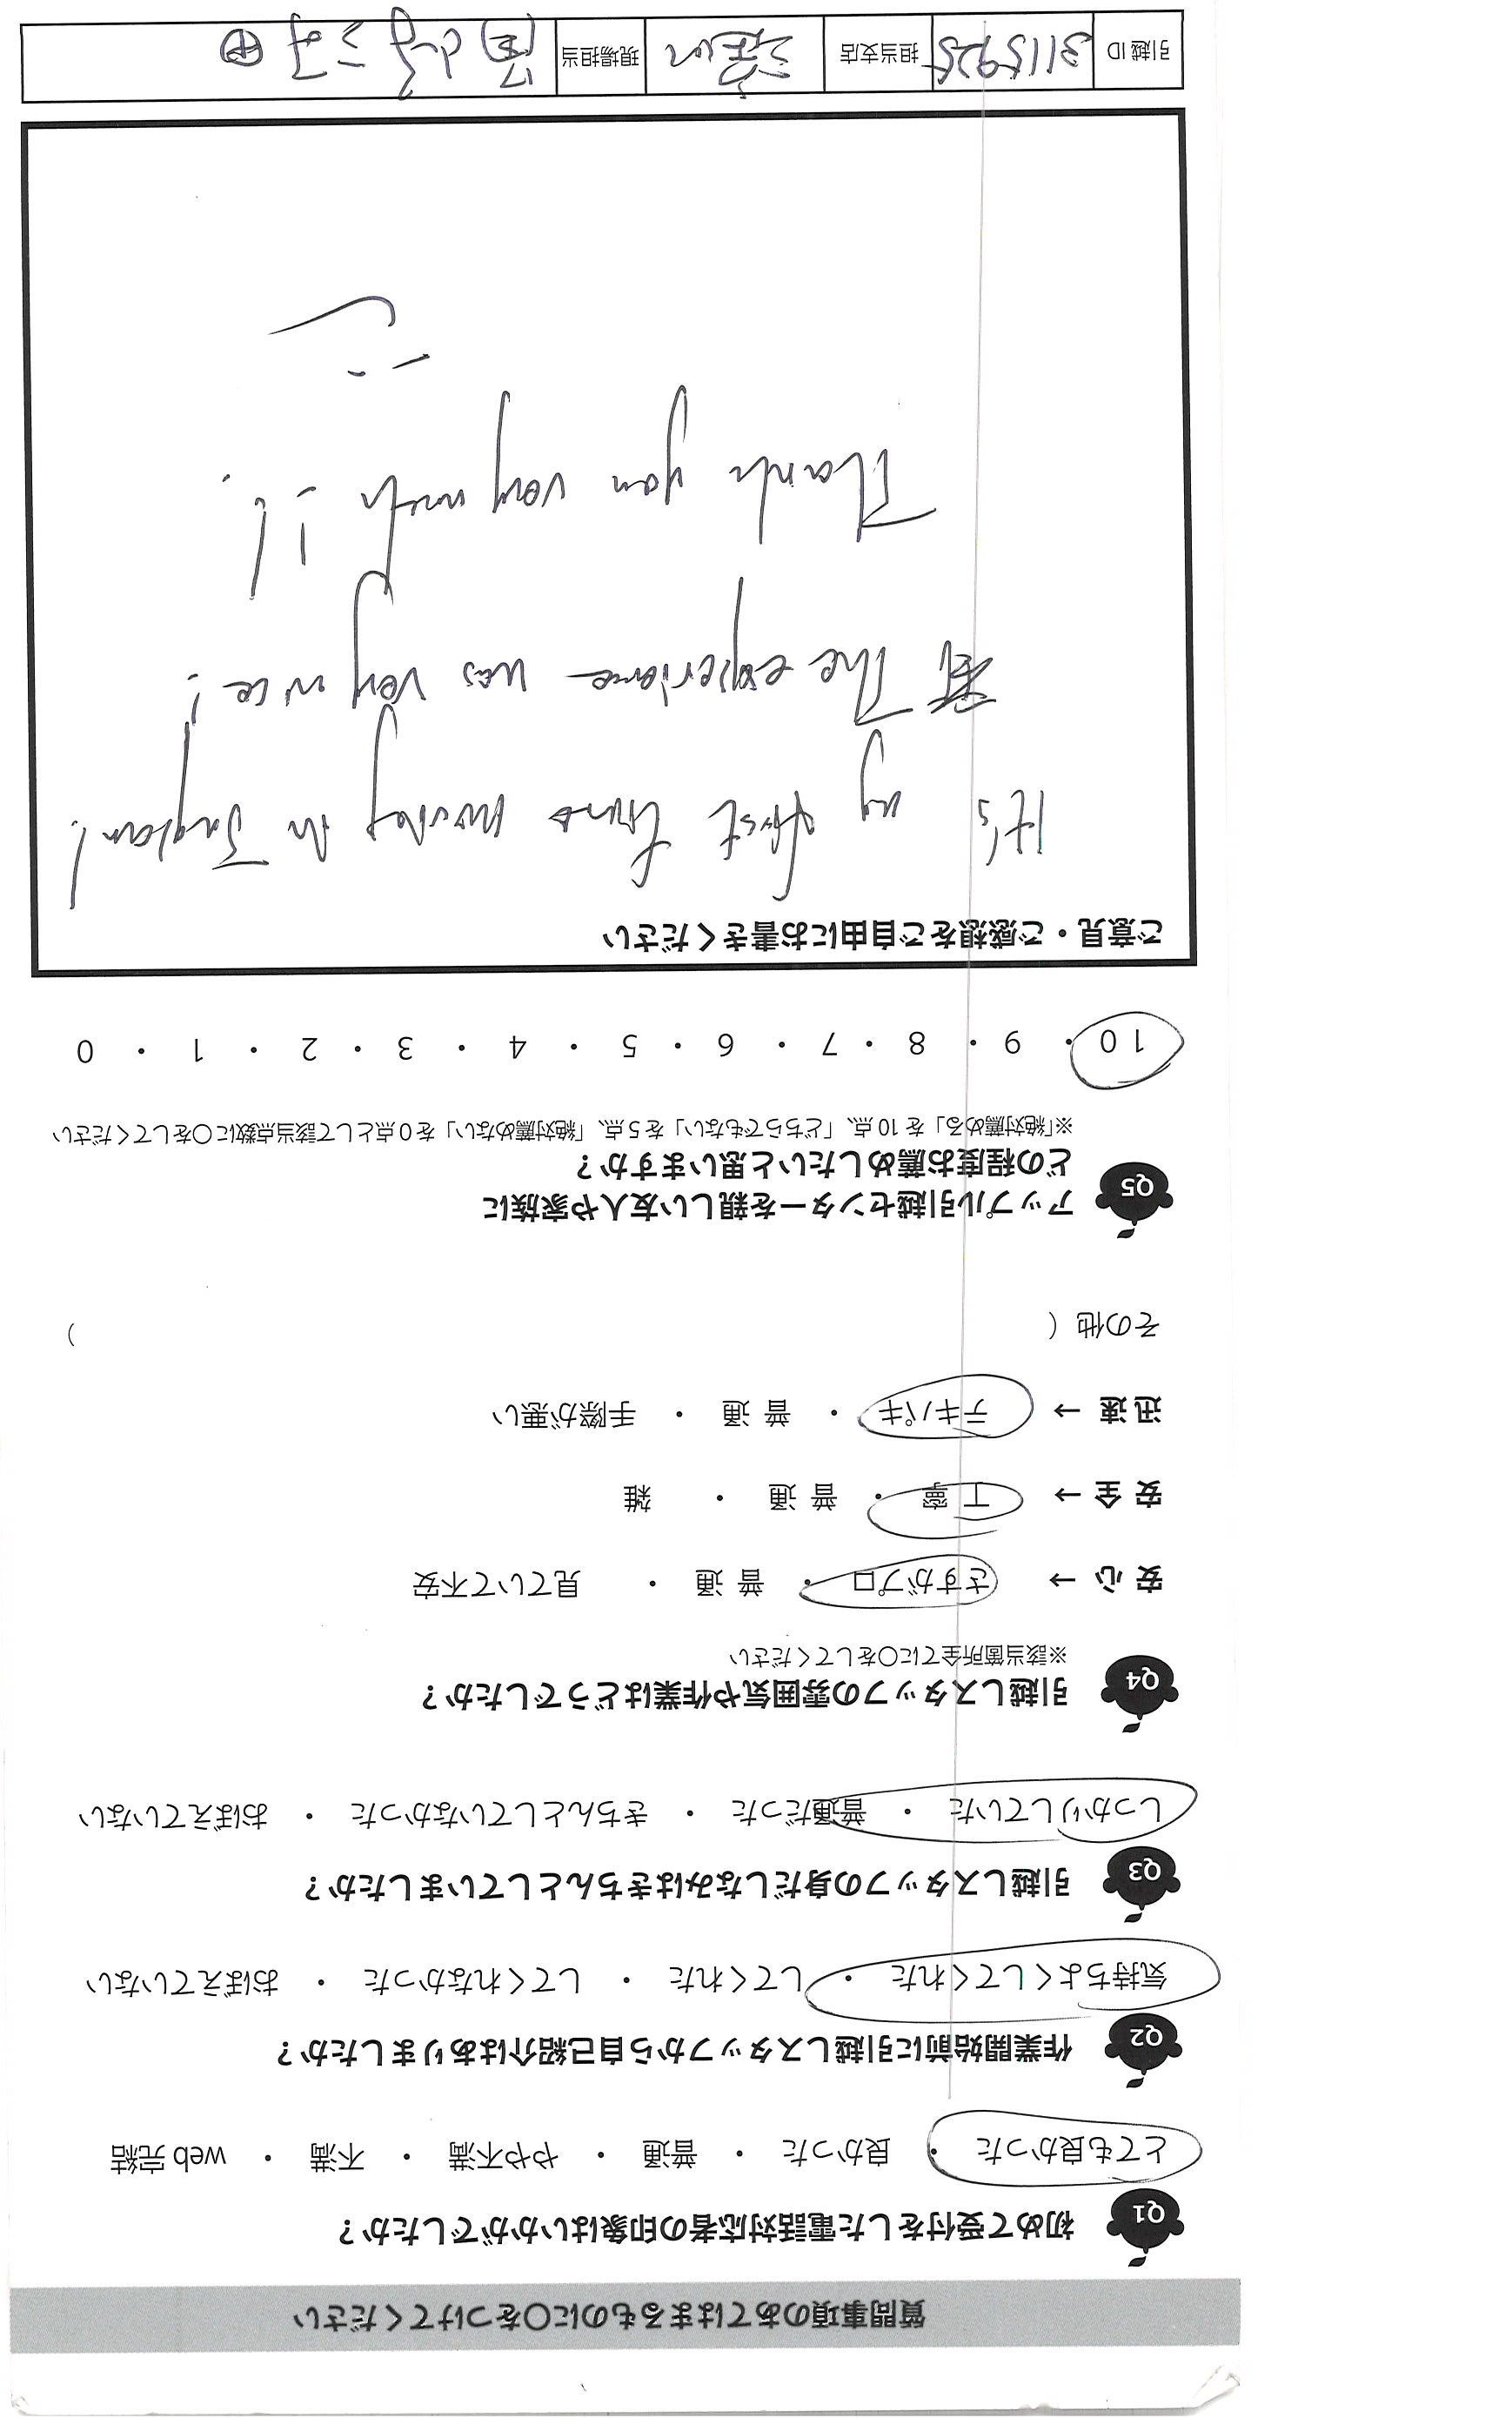 質問事項のあてはまるものに○をつけてください
Q1 初めて受付をした電話対応者の印象はいかがでしたか？
とても良かった ・ 良かった ・ 普通 ・ やや不満 ・ 不満 ・ web 完結
Q2 作業開始前に引越しスタッフから自己紹介はありましたか？
気持ちよくしてくれた ・ してくれた ・ してくれなかった ・ おぼえていない
Q3 引越しスタッフの身だしなみはきちんとしていましたか？
しっかりしていた ・ 普通だった ・ きちんとしていなかった ・ おぼえていない
Q4 引越しスタッフの雰囲気や作業はどうでしたか？
※該当箇所全てに○をしてください
安 心 → さすがプロ ・ 普 通 ・ 見ていて不安
安 全 → 丁 寧 ・ 普 通 ・ 雑
迅 速 → テキパキ ・ 普 通 ・ 手際が悪い
その他（ ）
Q5 アップル引越センターを親しい友人や家族に
どの程度お薦めしたいと思いますか？
※「絶対薦める」を 10 点、「どちらでもない」を 5 点、「絶対薦めない」を 0 点として該当点数に○をしてください
10 ・ 9 ・ 8 ・ 7 ・ 6 ・ 5 ・ 4 ・ 3 ・ 2 ・ 1 ・ 0
ご意見・ご感想をご自由にお書きください
It's my first time moving in Japan!
The experience was very nice!
Thank you very much !!
引越 ID 3115925 担当支店 現場担当